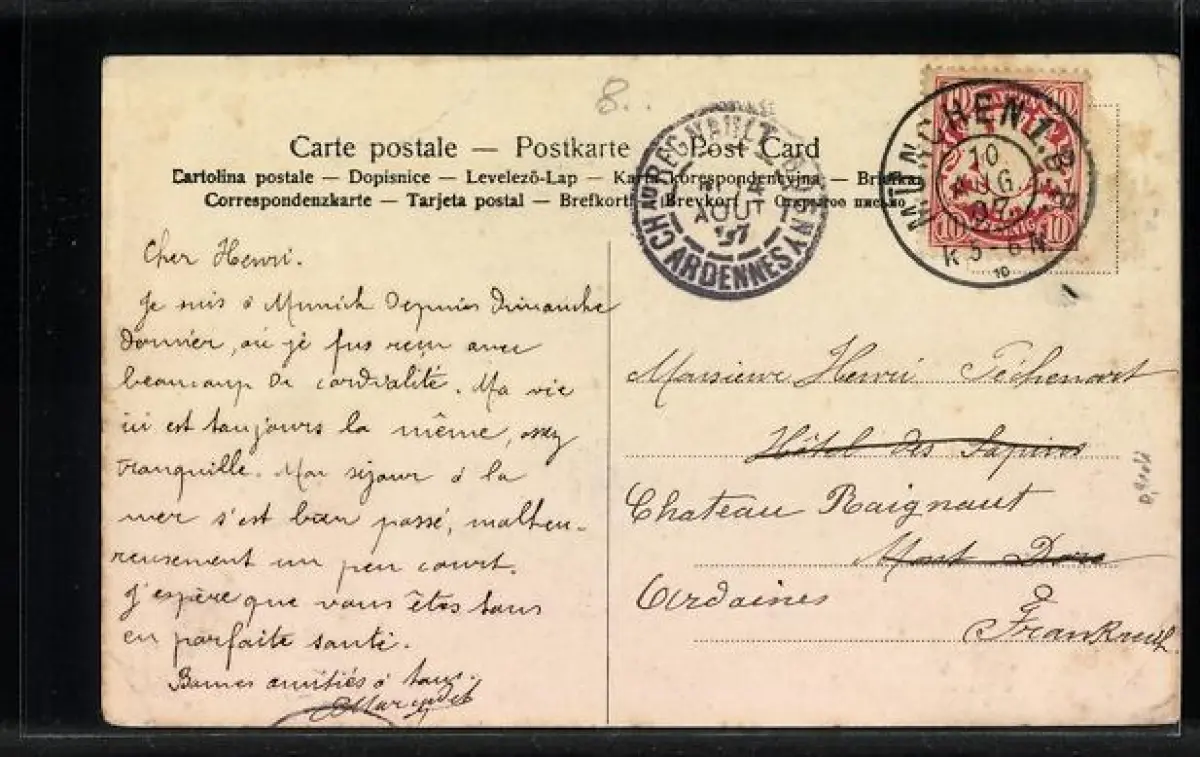 8..
Carte postale — Postkarte — Post Card
Cartolina postale — Dopisnice — Levelező-Lap — Karta korespondencyjna — Briefka
Correspondenzkarte — Tarjeta postal — Brefkort — Brevkort — Открытое письмо
CHAU REGNAULT
AOUT
07
ARDENNES
MÜNCHEN 7. B.P.
10
AUG.
07
N. 5-6 N.
10
10
10
10
10
Cher Henri.
Je suis à Munich depuis dimanche
dernier, où je fus reçu avec
beaucoup de cordialité. Ma vie
ici est toujours la même, assez
tranquille. Mon séjour à la
mer s'est bien passé, malheu-
reusement un peu court.
J'espère que vous êtes tous
en parfaite santé.
Bonnes amitiés à tous.
Monsieur Henri Péchenart
Hôtel des Sapins
Chateau Raignaut
Mont Dore
Ardaines
Frankreich.